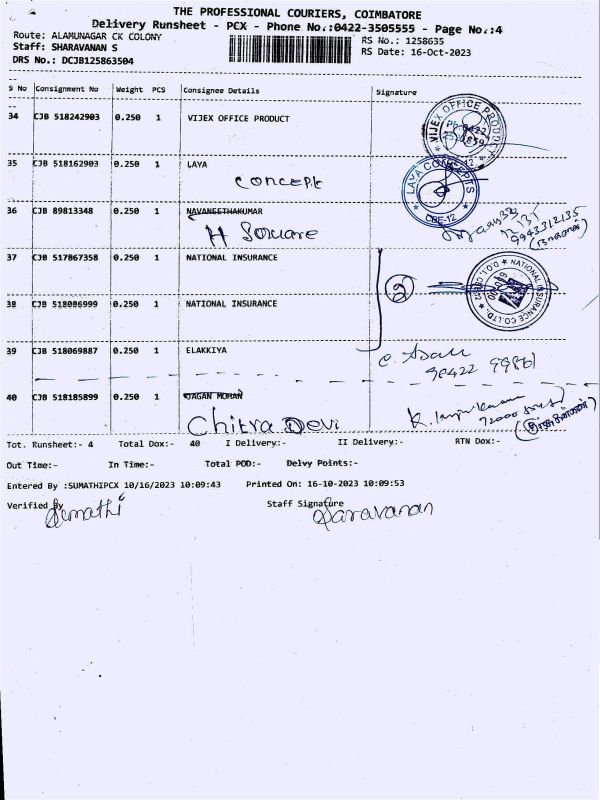 THE PROFESSIONAL COURIERS, COIMBATORE
Delivery Runsheet - PCX - Phone No.:0422-3505555 - Page No.:4
Route: ALAMUNAGAR CK COLONY
RS No.: 1258635
Staff: SHARAVANAN S
RS Date: 16-Oct-2023
DRS No.: DCJB125863504
S No Consignment No Weight PCS Consignee Details Signature
34 CJB 518242903 0.250 1 VIJEX OFFICE PRODUCT
VIJEX OFFICE PRODUCT
35 CJB 518162903 0.250 1 LAYA
Concept
LAYA CONCEPTS
CBE-12
36 CJB 89813348 0.250 1 NAVANEETHAKUMAR
H Square
9943312135
37 CJB 517867358 0.250 1 NATIONAL INSURANCE
2
NATIONAL INSURANCE CO.LTD.
38 CJB 518086999 0.250 1 NATIONAL INSURANCE
39 CJB 518069887 0.250 1 ELAKKIYA
98422 99861
40 CJB 518185899 0.250 1 JAGAN MOHAN
Chitra Devi
Tot. Runsheet:- 4 Total Dox:- 40 I Delivery:- II Delivery:- RTN Dox:-
Out Time:- In Time:- Total POD:- Delvy Points:-
Entered By :SUMATHIPCX 10/16/2023 10:09:43 Printed On: 16-10-2023 10:09:53
Verified By Staff Signature
Sumathi Saravanan